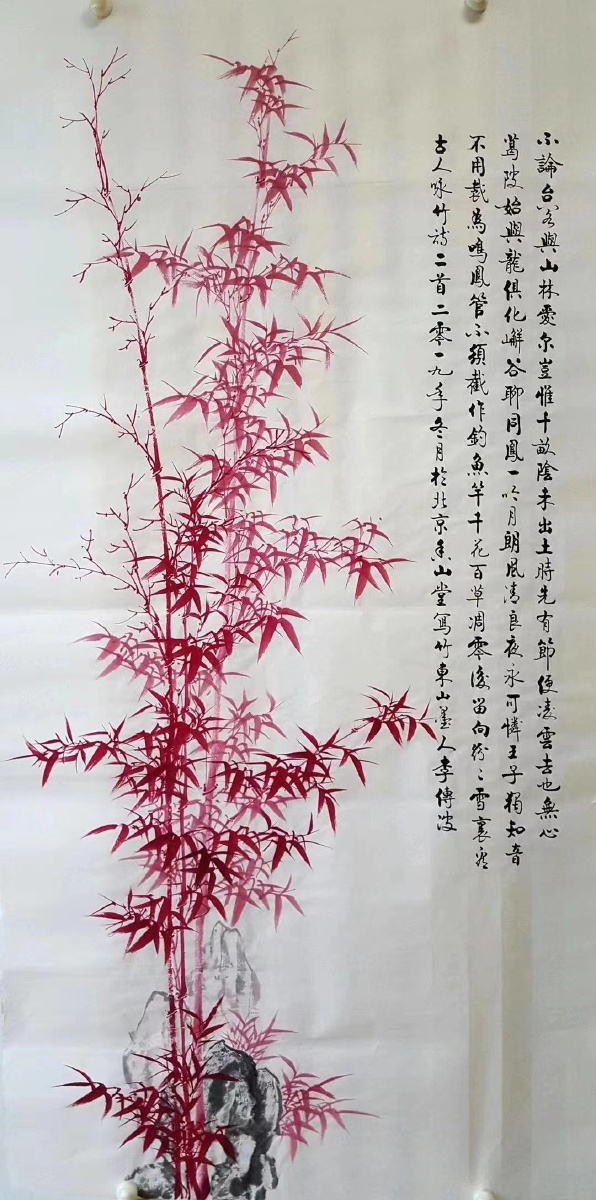 不論台閣與山林愛尔豈惟千畝陰未出土時先有節便凌雲去也無心
葛陂始與龍俱化嶰谷聊同鳳一吟月朗風清良夜永可憐王子獨知音
不用裁為鳴鳳管不須截作釣魚竿千花百草凋零後留向紛〻雪裏看
古人咏竹詩二首二零一九年冬月於北京香山堂寫竹東山墨人李傳波